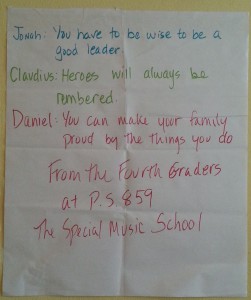 Jonah: You have to be wise to be a
good leader
Claudius: Heroes will always be
rembered.
Daniel: You can make your family
proud by the things you do
From the Fourth Graders
at P.S. 859
The Special Music School